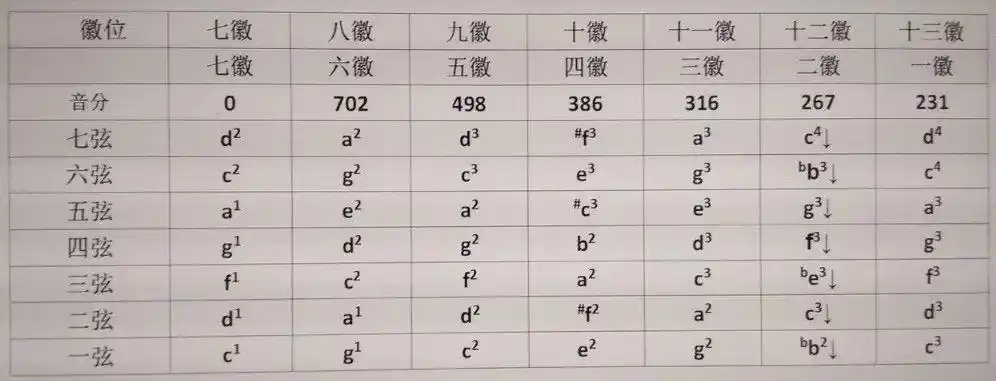 徽位 七徽 八徽 九徽 十徽 十一徽 十二徽 十三徽
七徽 六徽 五徽 四徽 三徽 二徽 一徽
音分 0 702 498 386 316 267 231
七弦 d² a² d³ #f³ a³ c⁴↓ d⁴
六弦 c² g² c³ e³ g³ ᵇb³↓ c⁴
五弦 a¹ e² a² #c³ e³ g³↓ a³
四弦 g¹ d² g² b² d³ f³↓ g³
三弦 f¹ c² f² a² c³ ᵇe³↓ f³
二弦 d¹ a¹ d² #f² a² c³↓ d³
一弦 c¹ g¹ c² e² g² ᵇb²↓ c³